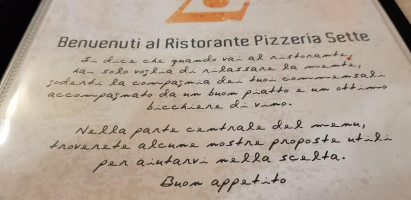 Benvenuti al Ristorante Pizzeria Sette
Si dice che quando vai al ristorante,
hai solo voglia di rilassare la mente,
goderti la compagnia dei tuoi commensali
accompagnato da un buon piatto e un ottimo
bicchiere di vino.
Nella parte centrale del menu,
troverete alcune nostre proposte utili
per aiutarvi nella scelta.
Buon appetito